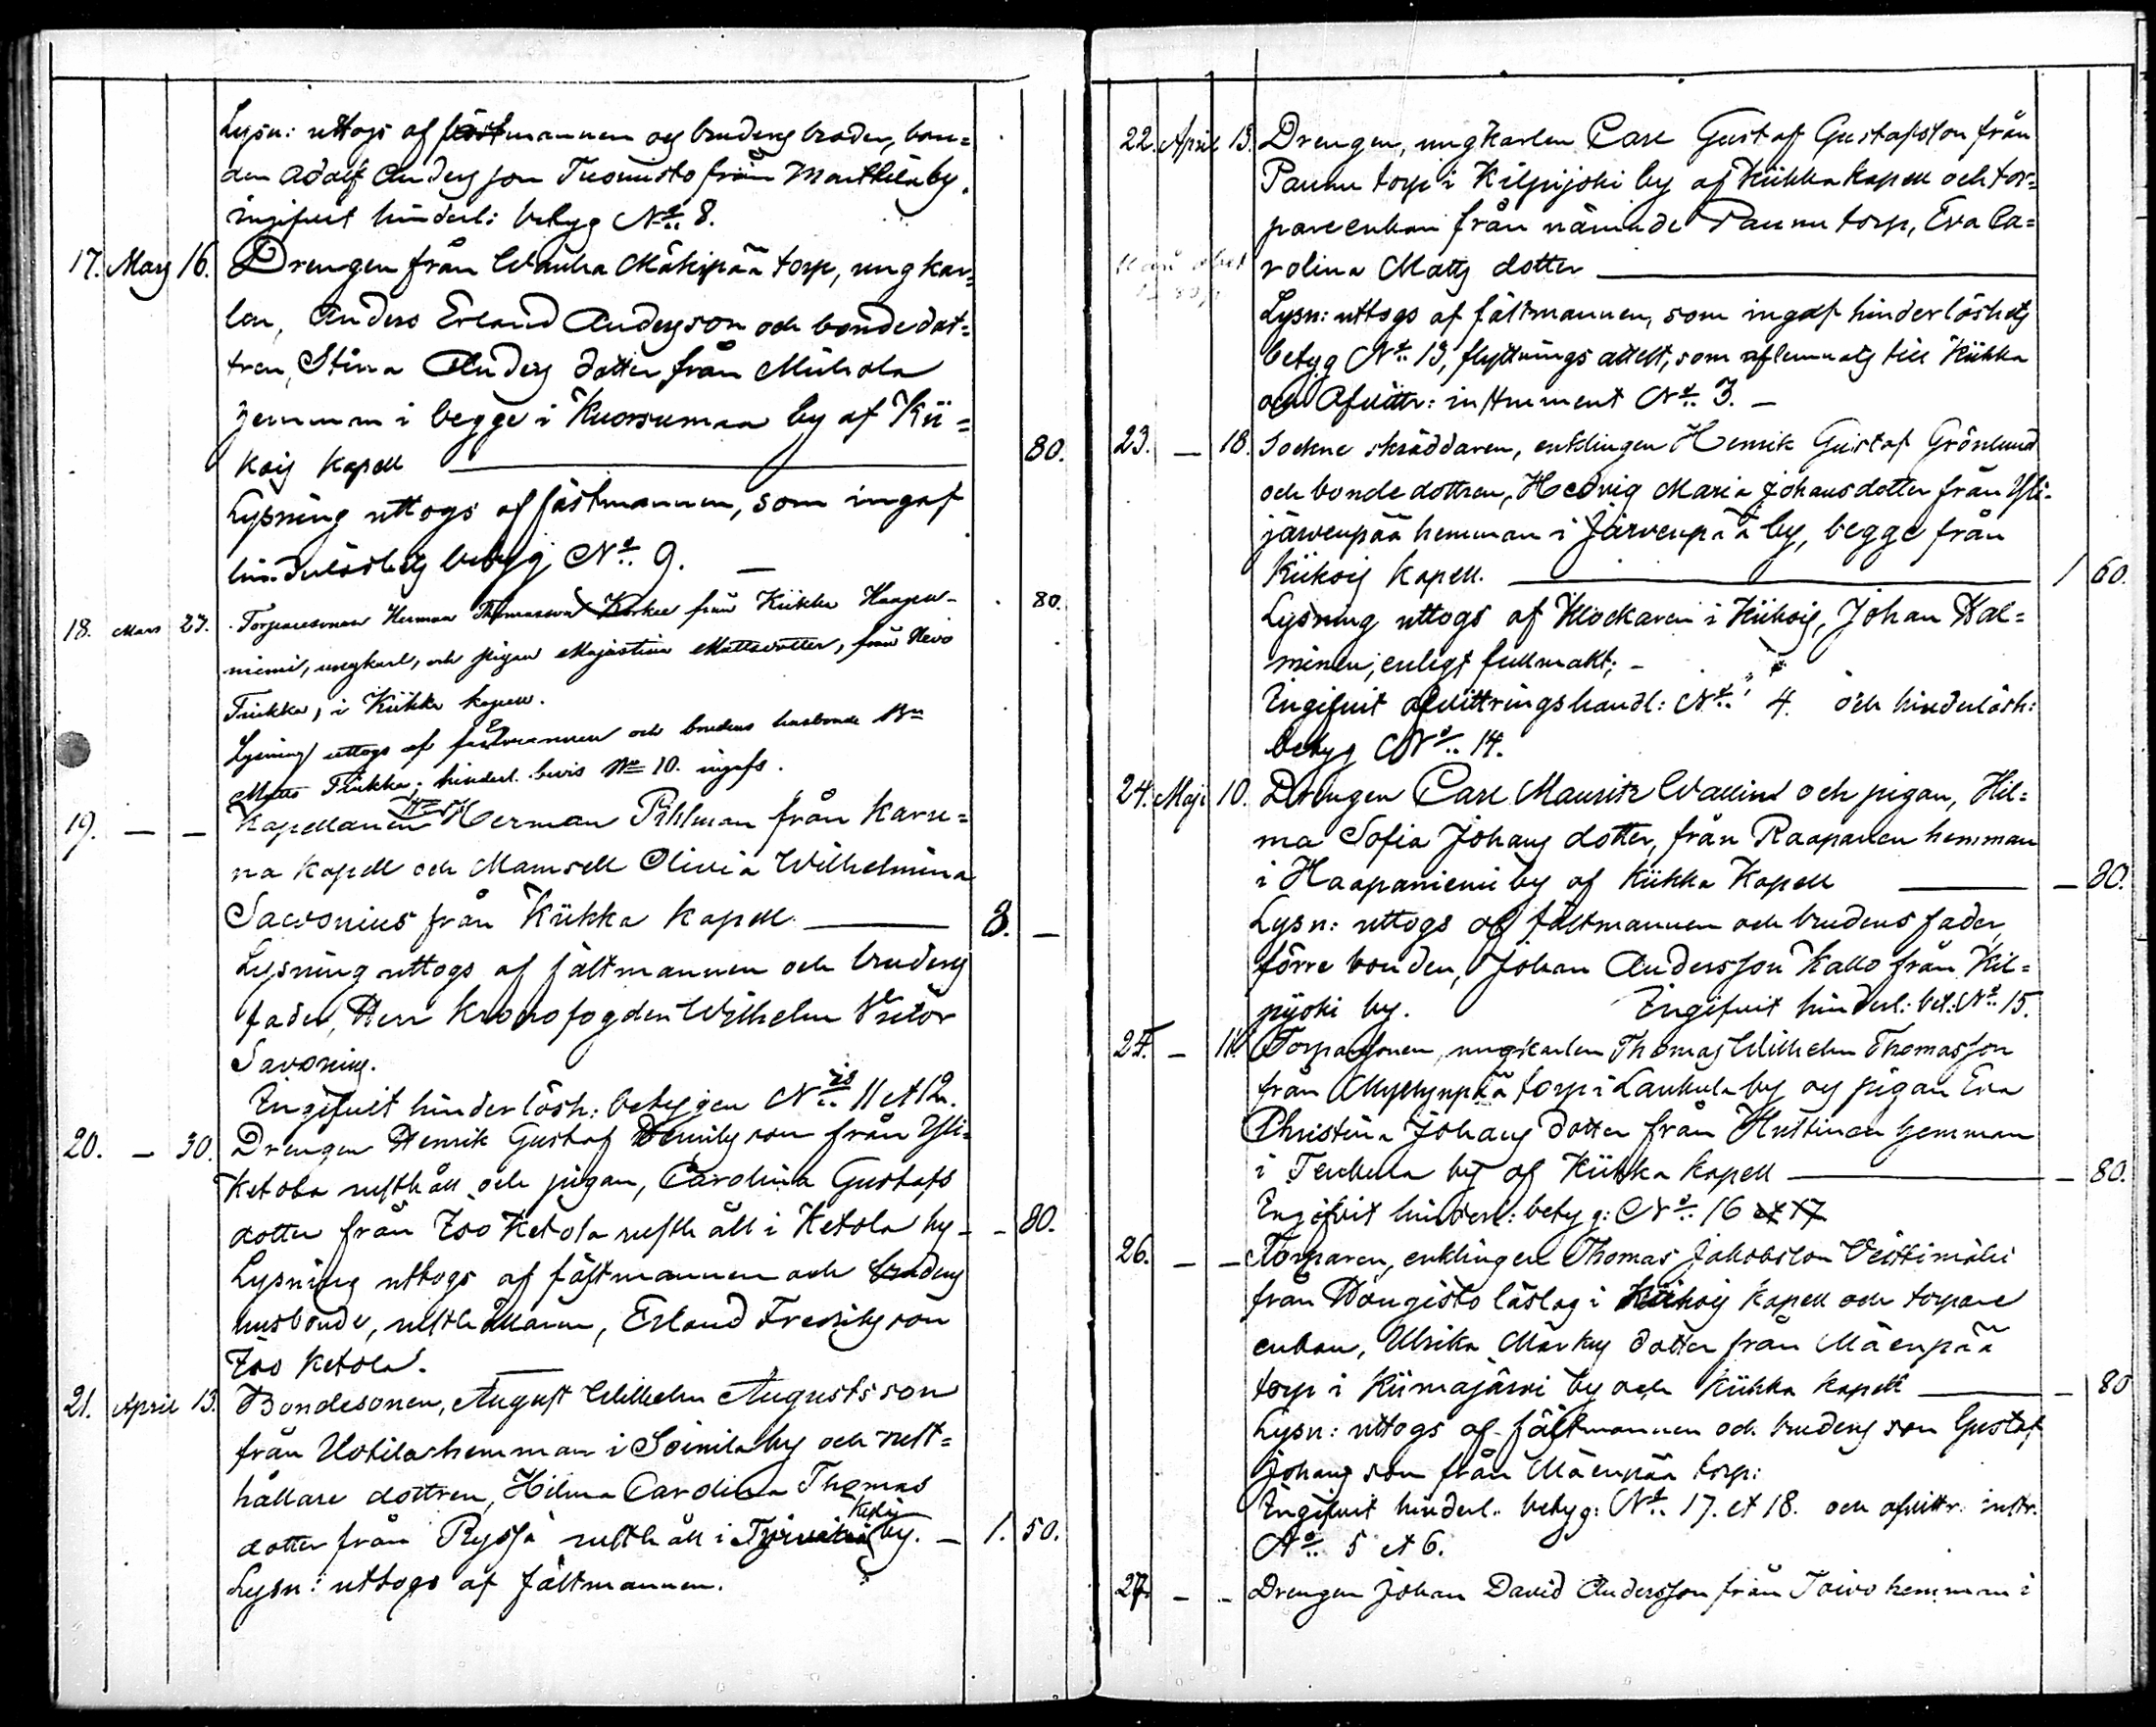 Lysn: uttogs af fästmannen og brudens broder, bon=
den Adolf Andersson Tuomisto från Marttila by.
ingifvet hinderl: betyg No. 8.
17. Mars 16. Drengen från Wanha Mäkipää torp, ungkar=
len, Anders Erland Andersson och bondedot=
tren, Stina Anders dotter från Mickola
hemman i begge i Kuorsumaa by af Kii=
kois Kapell 80.
Lysning uttogs af fästmannen, som ingaf
hinderlöshets betyg No. 9. —
18. Mars 27. Torparesonen Herman Thomasson Korkee från Kiikka Haapa- 80.
niemi, ungkarl, och pigan Majastina Mattsdotter, från Heivo
Tiukka, i Kiikka kapell.
Lysning uttogs af fästmannen och brudens husbonde Bn
Matts Tiukka; hinderl. bevis No 10. ingafs.
19. — — Kapellanen Herr Herman Pihlman från Karu=
na kapell och Mamsell Olivia Wilhelmina
Savonius från Kiikka kapell. 3. —
Lysning uttogs af fästmannen och brudens
fader, Herr Kronofogden Wilhelm Victor
Savonius.
Ingifvit hinderlösh: betygen Nris 11 et 12.
20. — 30. Drengen Henrik Gustaf Henriksson från Yli=
Ketola rusthåll och pigan, Carolina Gustafs
dotter från Iso Ketola rusthåll i Ketola by — — 80.
Lysning uttogs af fästmannen och brudens
husbonde, rusthållaren, Erland Fredriksson
Iso Ketola.
21. April 13. Bondesonen, August Wilhelm Augustsson
från Uotila hemman i Soinila by och rust=
hållare dottren, Hilma Carolina Thomas
dotter från Ryssä rusthåll i by. — 1. 50.
Lysn: uttogs af fästmannen.
22. April 13. Drengen, ungkarlen Carl Gustaf Gustafsson från
Paunu torp i Kilpijoki by af Kiikka kapell och tor=
pareenkan från nämnde Paunu torp, Eva Ca=
rolina Matts dotter
Lysn: uttogs af fästmannen, som ingaf hinderlöshets
betyg No. 13, flyttnings attest, som aflemnats till Kiikka
och Afvittr: instrument No. 3. —
23. — 18. Sockne skräddaren, enklingen Henrik Gustaf Grönlund
och bonde dottren, Hedvig Maria Johansdotter från Yli-
järvenpää hemman i Järvenpää by, begge från
Kiikois Kapell. 1 60.
Lysning uttogs af Klockaren i Kiikois, Johan Hal=
minen, enligt fullmakt; —
Ingifvit afvittringshandl: No. 4. och hinderlösh:
betyg No. 14.
24. Maji 10. Drengen Carl Mauritz Wallin och pigan, Hil=
ma Sofia Johans dotter, från Raapanen hemman
i Haapaniemi by af Kiikka Kapell — 80.
Lysn: uttogs af fästmannen och brudens fader,
förre bonden, Johan Andersson Kallo från Kil=
pijoki by. Ingifvit hinderl: bet: No. 15.
25. — 11. Torparsonen, ungkarlen Thomas Wilhelm Thomasson
från Myllynpää torp i Laukula by og pigan Eva
Christina Johans dotter från Huttinen hemman
i by af Kiikka kapell — 80.
Ingifvit hinderl: betyg: No. 16 et 17
26. — — Torparen, enklingen Thomas Jakobsson Veistimäki
från Kongisto läslag i Kiikois kapell och torpare
enkan, Ulrika Markus dotter från Mäenpää
torp i Kiimajärvi by och Kiikka kapell — 80
Lysn: uttogs af fästmannen och brudens son Gustaf
Johansson från Mäenpää torp:
Ingifvit hinderl. betyg: No. 17. et 18. och afvittr. instr.
No. 5 et 6.
27. — — Drengen Johan David Andersson från Toivo hemman i